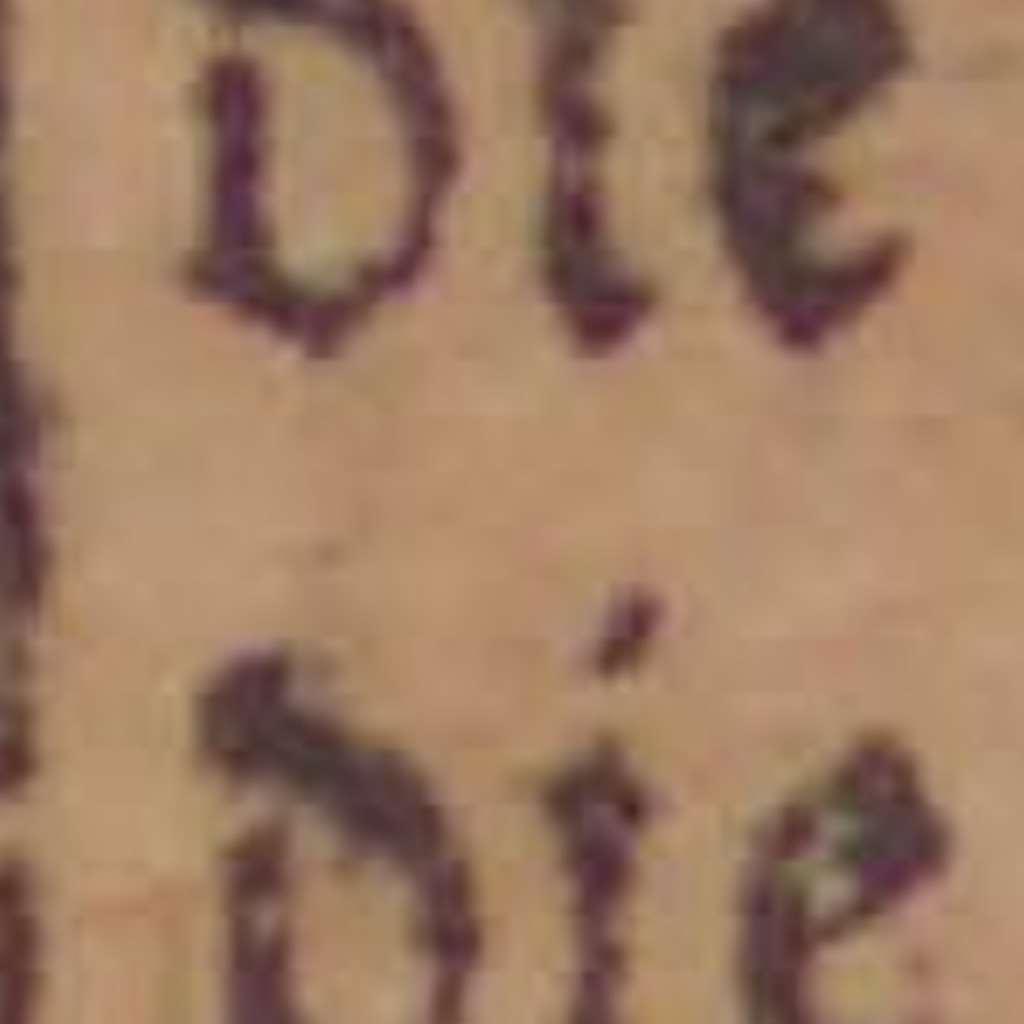 Die
Die